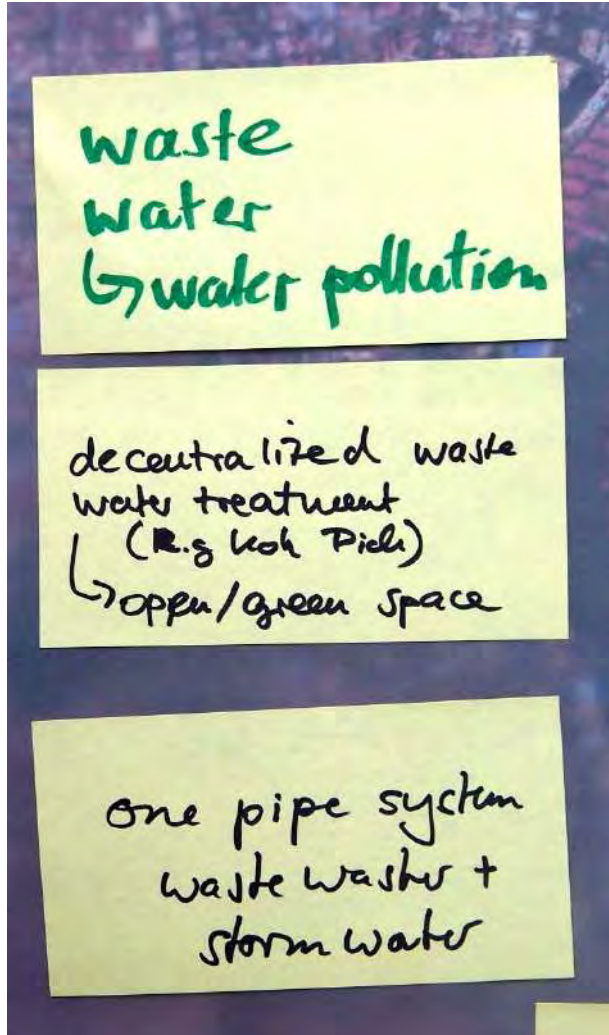 waste
water
↳ water pollution
decentralized waste
water treatment
(e.g Koh Pich)
↳ open/green space
one pipe system
waste waster +
storm water